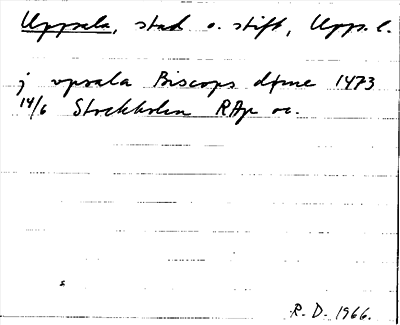 Uppsala, stad o. stift, Upps. l.
j vpsala Biscops döme 1473
14/6 Stockholm RAp or.
R. D. 1966.